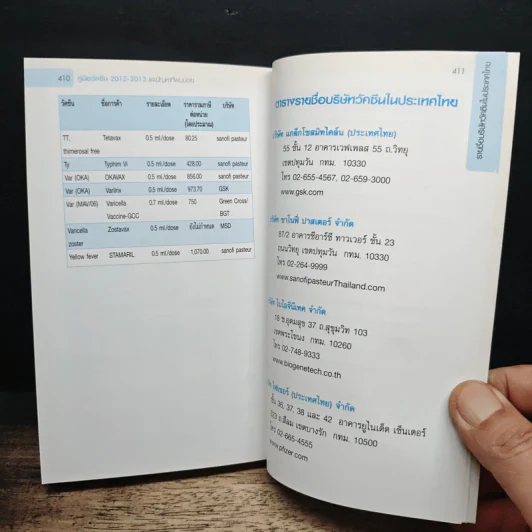 410 คู่มือวัคซีน 2012-2013 และปัญหาที่พบบ่อย
วัคซีน ชื่อการค้า รายละเอียด ราคารวมภาษี บริษัท
ต่อหน่วย
(โดยประมาณ)
TT, Tetavax 0.5 ml/dose 80.25 sanofi pasteur
thimerosal free
Ty Typhim Vi 0.5 ml/dose 428.00 sanofi pasteur
Var (OKA) OKAVAX 0.5 ml/dose 856.00 sanofi pasteur
Var (OKA) Varilrix 0.5 ml/dose 973.70 GSK
Var (MAV/06) Varicella 0.7 ml/dose 750 Green Cross/
Vaccine-GCC BGT
Varicella Zostavax 0.5 ml/dose ยังไม่กำหนด MSD
zoster
Yellow fever STAMARIL 0.5 ml/dose 1,070.00 sanofi pasteur
411
ตารางรายชื่อบริษัทวัคซีนในประเทศไทย
บริษัท แกล็กโซสมิทไคล์น (ประเทศไทย)
55 ชั้น 12 อาคารเวฟเพลส 55 ถ.วิทยุ
เขตปทุมวัน กทม. 10330
โทร 02-655-4567, 02-659-3000
www.gsk.com
บริษัท ซาโนฟี่ ปาสเตอร์ จำกัด
87/2 อาคารซีอาร์ซี ทาวเวอร์ ชั้น 23
ถนนวิทยุ เขตปทุมวัน กทม. 10330
โทร 02-264-9999
www.sanofipasteurThailand.com
ไบโอจีนีเทค จำกัด
18 ซ.อุดมสุข 37 ถ.สุขุมวิท 103
เขตพระโขนง กทม. 10260
โทร 02-748-9333
www.biogenetech.co.th
ไฟเซอร์ (ประเทศไทย) จำกัด
ชั้น 36, 37, 38 และ 42 อาคารยูไนเต็ด เซ็นเตอร์
323 ถ.สีลม เขตบางรัก กทม. 10500
โทร 02-665-4555
www.pfizer.com